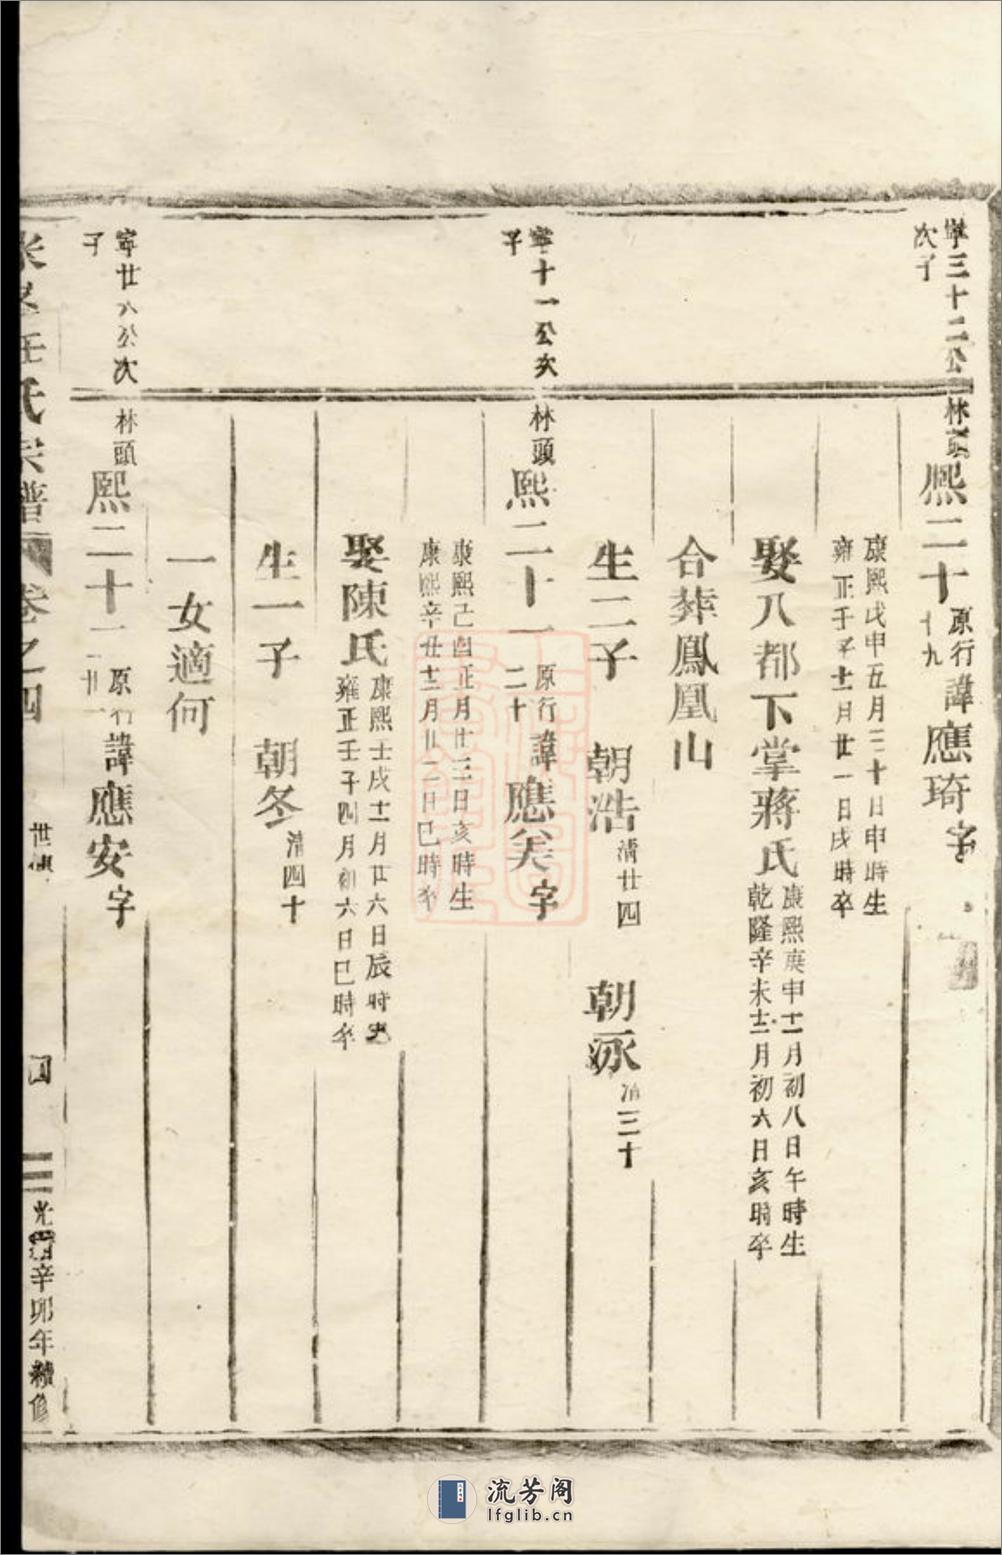 寧三十二公
次子
林頭
熙二十
原行
十九
諱應琦字
康熙戊申五月三十日申時生
雍正壬子十一月廿一日戌時卒
娶八都下掌蔣氏
康熙庚申十一月初八日午時生
乾隆辛未十二月初六日亥時卒
合葬鳳凰山
生二子 朝浩 清廿四 朝泳 清三十
寧十一公次
子
林頭
熙二十一
原行
二十
諱應 字
康熙己酉正月廿三日亥時生
康熙辛丑十二月廿二日巳時卒
娶陳氏
康熙壬戌十一月廿六日辰時生
雍正壬子四月初六日巳時卒
生一子 朝冬 清四十
一女適何
寧廿八公次
子
林頭
熙二十二
原行
廿一
諱應安字
氏宗譜 卷之四
世傳
四
光緒辛卯年續修
流芳阁
lfglib.cn